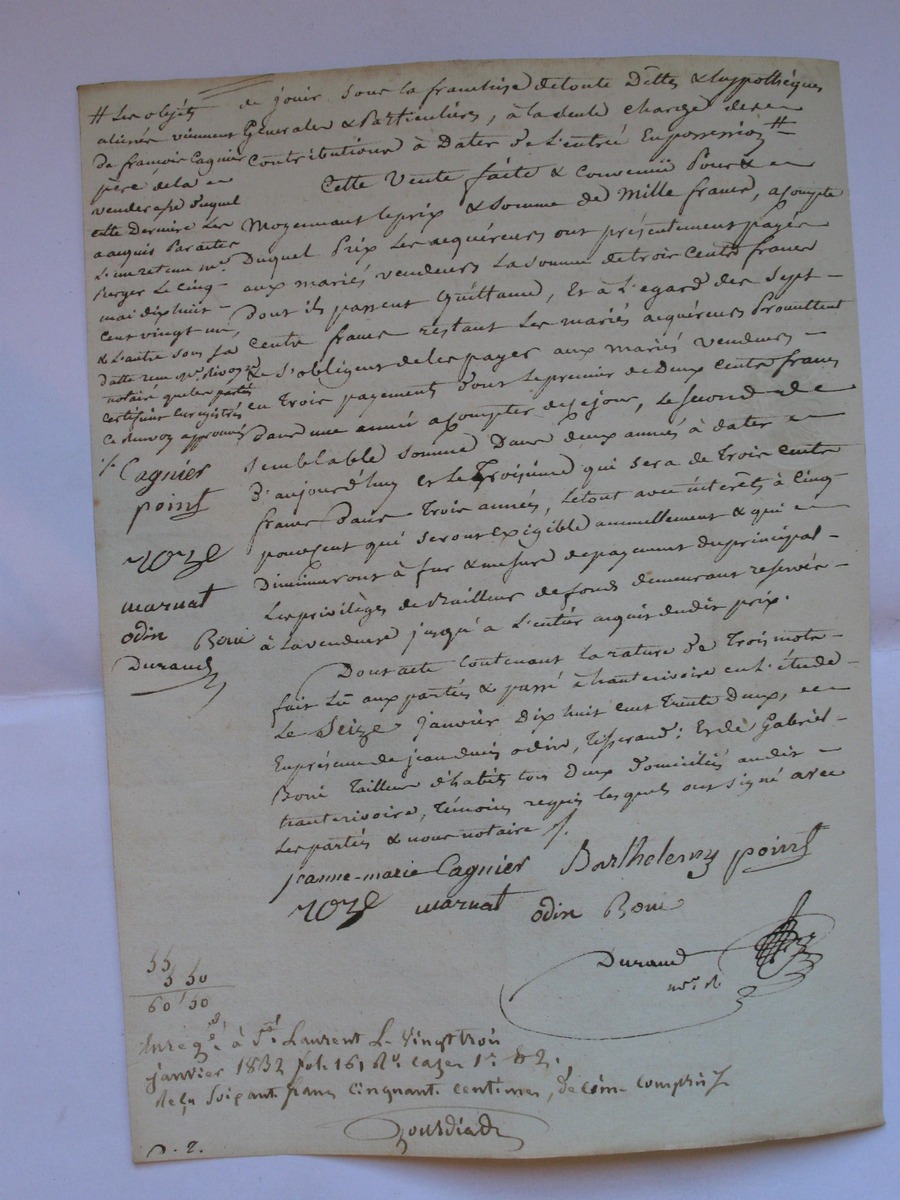 de jouir sous la franchise de toute Dettes & hypothèques
Générales & Particulières, à la seule charge des
Contributions à Dater de l'entrée En possession #
Cette Vente faite & Convenüe Pour &
Moyennant le prix & somme de Mille francs, acompte
Duquel Prix les acquéreurs ont présentement payés
aux mariés vendeurs la somme de trois Cents francs
dont ils passent Quittance, Et à l'egard des Sept
Cents francs restant Les mariés acquéreurs Promettent
& s'obligent de les payer aux mariés vendeurs
en Trois payements dont le premier de Deux Cents francs
dans une année acompter de ce jour, le second de
Semblable somme Dans deux années à dater
D'aujourd'huy et le Troisième qui sera de Trois Cents
francs dans Trois années, le tout avec interêts à Cinq
pour cent qui seront Exigible annuellement & qui
Diminueront à fur & mesure de payement du principal
Les privilèges de Bailleur de fonds demeurant reservés
à la venderesse jusqu'a l'entier acquit dudit prix.
Dont acte Contenant la rature de Trois mots
fait Lû aux parties & passé à hauterivoire en l'étude
Le Seize Janvier Dix huit cent Trente Deux,
En présence de jean denis odin, Tisserand; Et de Gabriel
Boni Tailleur d'habits tous Deux Domiciliés audit
hauterivoire, Témoins requis lesquels ont signé avec
les parties & nous notaire
# Les objets
aliénés viennent
de françois Cagnier
père de la
venderesse duquel
cette Dernière Les
a acquis Par actes
L'un retenu me.
Berger Le Cinq
mai dix huit
Cent vingt un,
& L'autre sous la
datte reçu me.
notaire que les parties
certifient Enregistrés
Ce Renvoy approuvé
Cagnier
point
roze
marnat
odin Boni
Durand
jeanne-marie Cagnier Barthelemy point
roze marnat odin Boni
Durand
nore.
55
5 50
60 50
Enregé. à St. Laurent Le Vingt trois
janvier 1832 fol. 16, Ro. cazes 1re. & 2.
reçu Soixante francs Cinquante centimes, décime compris